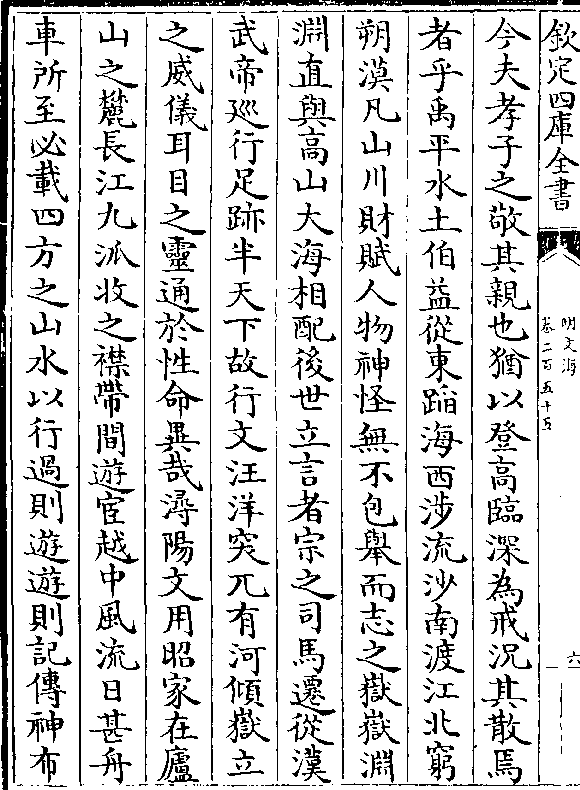 欽定四庫全書
明文海
卷二百五十五
六
今夫孝子之敬其親也猶以登高臨深為戒況其散焉
者乎禹平水土伯益從東蹈海西涉流沙南渡江北窮
朔漠凡山川財賦人物神怪無不包舉而志之嶽嶽淵
淵直與高山大海相配後世立言者宗之司馬遷從漢
武帝廵行足跡半天下故行文汪洋突兀有河傾嶽立
之威儀耳目之靈通於性命異哉潯陽文用昭家在廬
山之麓長江九派收之襟帶間遊宦越中風流日甚舟
車所至必載四方之山水以行過則遊遊則記傳神布